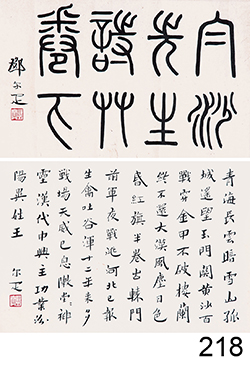 先生
詩艸
卷下
鄧尔疋
青海長雲暗雪山孤
城遥望玉門關黃沙百
戰穿金甲不破樓蘭
終不還大漠風塵日色
昏紅旗半卷出轅門
前軍夜戰洮河北已報
生禽吐谷渾十二年來多
戰場天威已息陣堂々神
靈漢代中興主功業汾
陽異姓王 尔疋
218